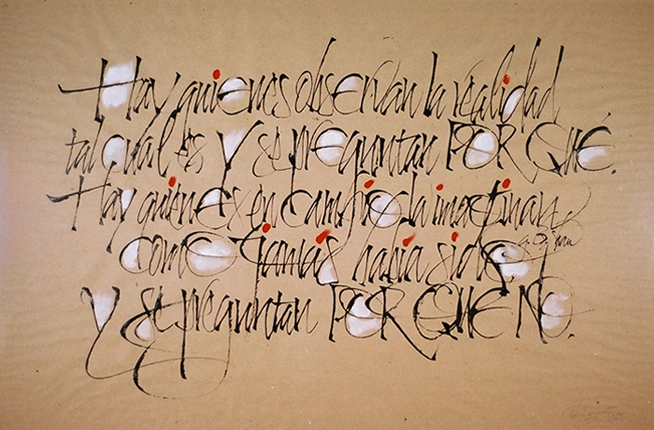 Hay quienes observan la realidad
tal cual es y se preguntan POR QUÉ.
Hay quienes en cambio, la imaginan
como jamás había sido
y se preguntan POR QUÉ NO.